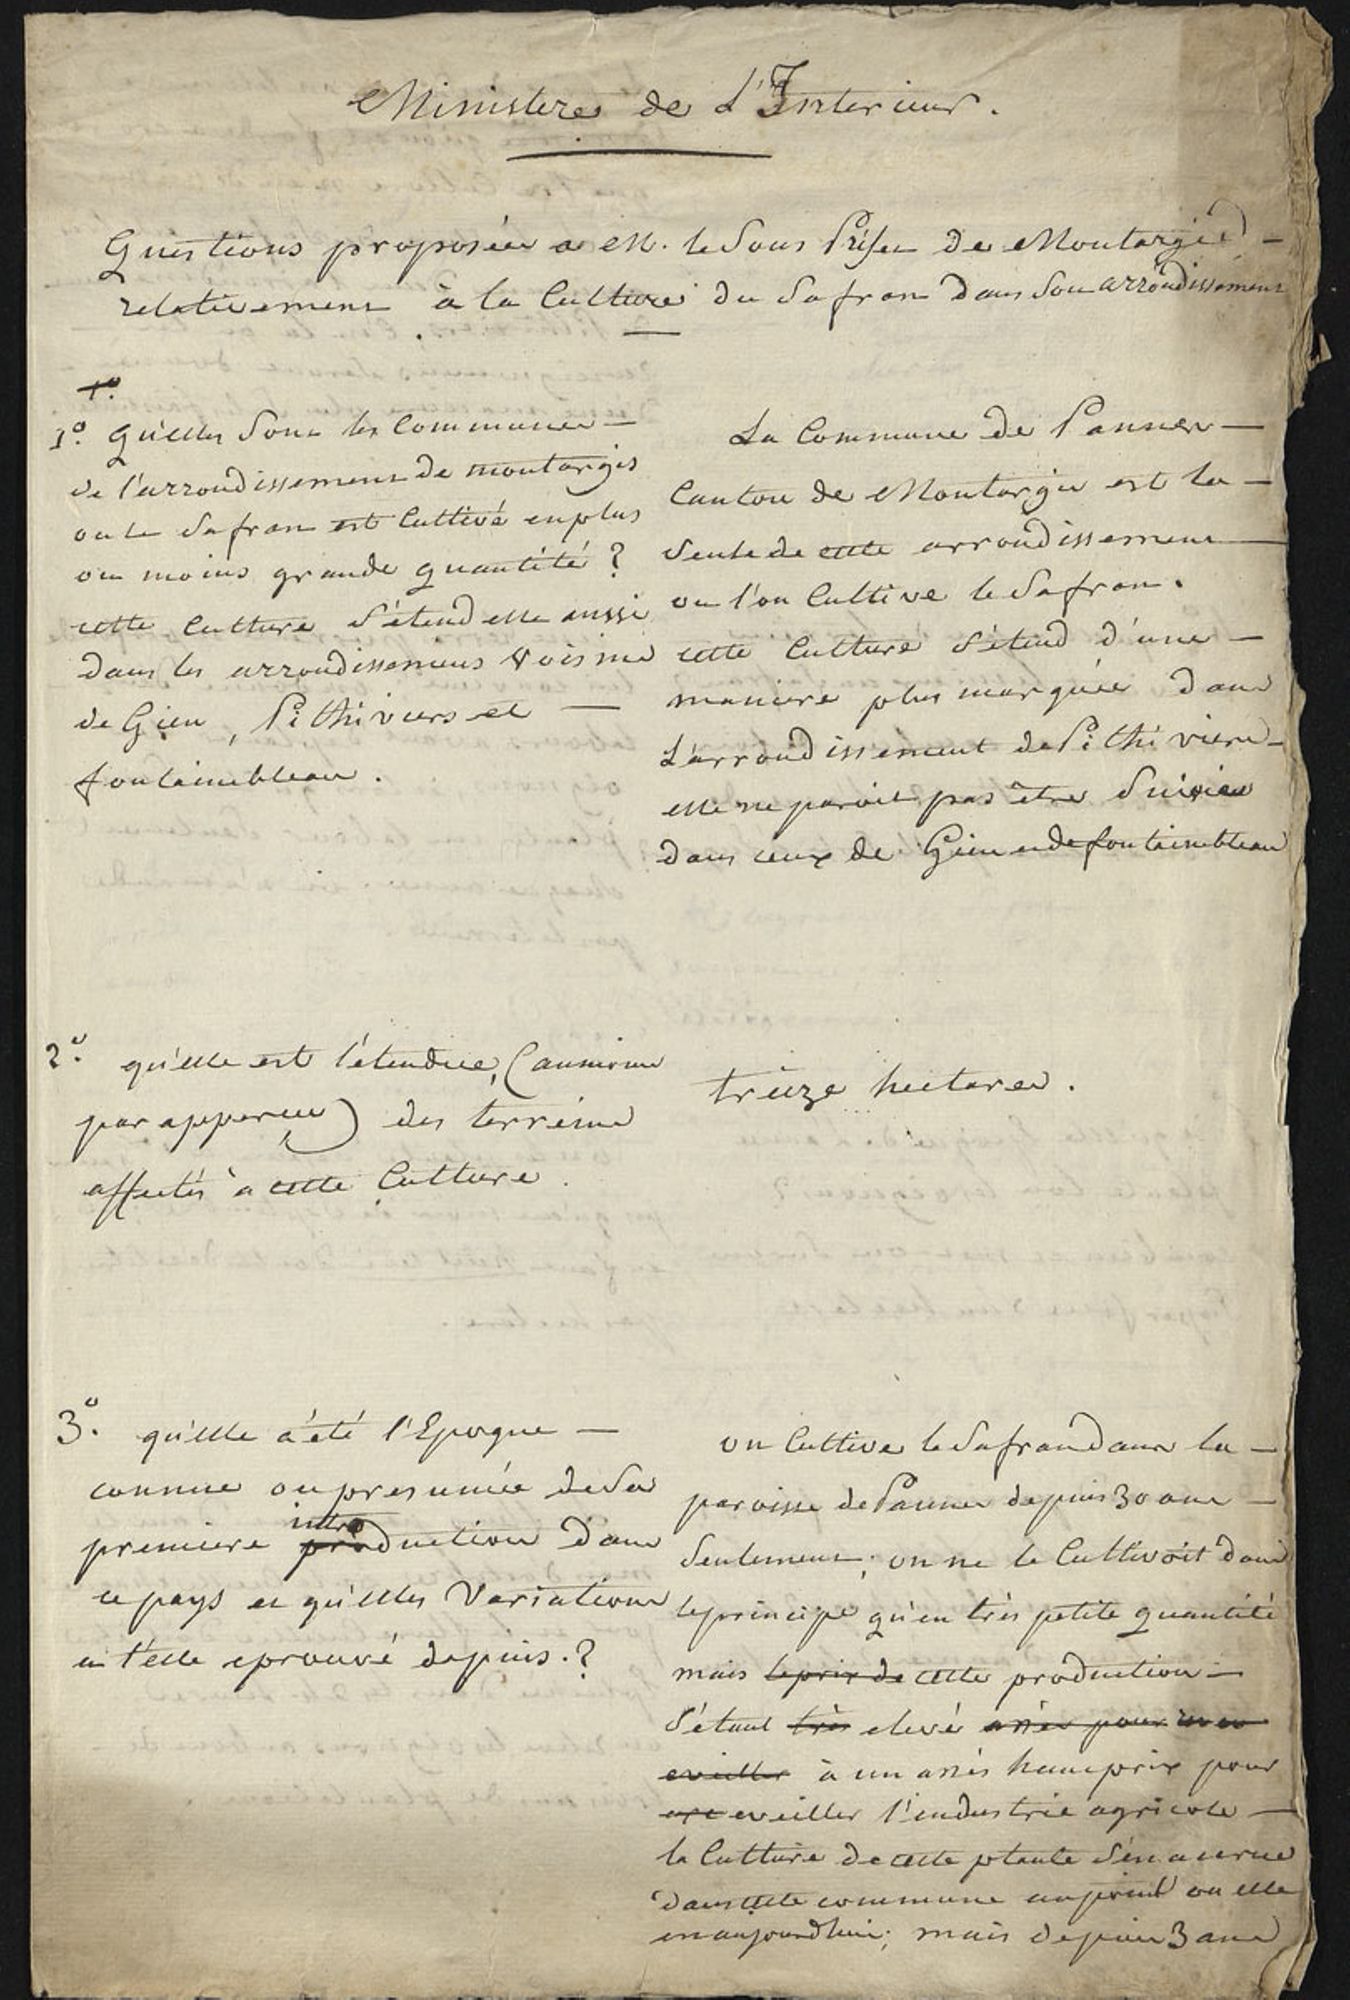 Ministere de L'Interieur.
Questions proposées a M. le Sous Préfet de Montargis
relativement à la Culture du Safran dans son arrondissement
1º
1º. Qu'elles sont les Communes
de l'arrondissement de montargis
ou le Safran est Cultivé en plus
ou moins grande quantité ?
cette Culture s'étend elle aussi
dans les arrondissemens voisins
de Gien, Pithiviers et
fontainebleau.
La Commune de Pannes
Canton de Montargis est la
seule de cette arrondissement
ou l'on Cultive le Safran.
cette Culture s'étend d'une
maniere plus marquée dans
L'arrondissement de Pithiviers
elle ne paroit pas être Suivie
dans ceux de Gien et de fontainebleau
2º. qu'elle est l'étendue, (au moins
par apperçu) des terreins
affectés à cette Culture
treize hectares.
3º. qu'elle a été l'Epoque
connue ou presumée de Sa
intro
premiere production dans
ce pays et qu'elles Variations
a t'elle eprouvé depuis.?
on Cultive le Safran dans la
paroisse de Pannes depuis 30 ans
Seulement; on ne le Cultivoit dans
le principe qu'en très petite quantité
mais le prix de cette production
S'étant très elevé assés pour
eveiller à un assés haut prix pour
eveiller l'industrie agricole
la Culture de cette plante s'est accrue
dans cette commune au point ou elle
est aujourdhui; mais depuis 3 ans